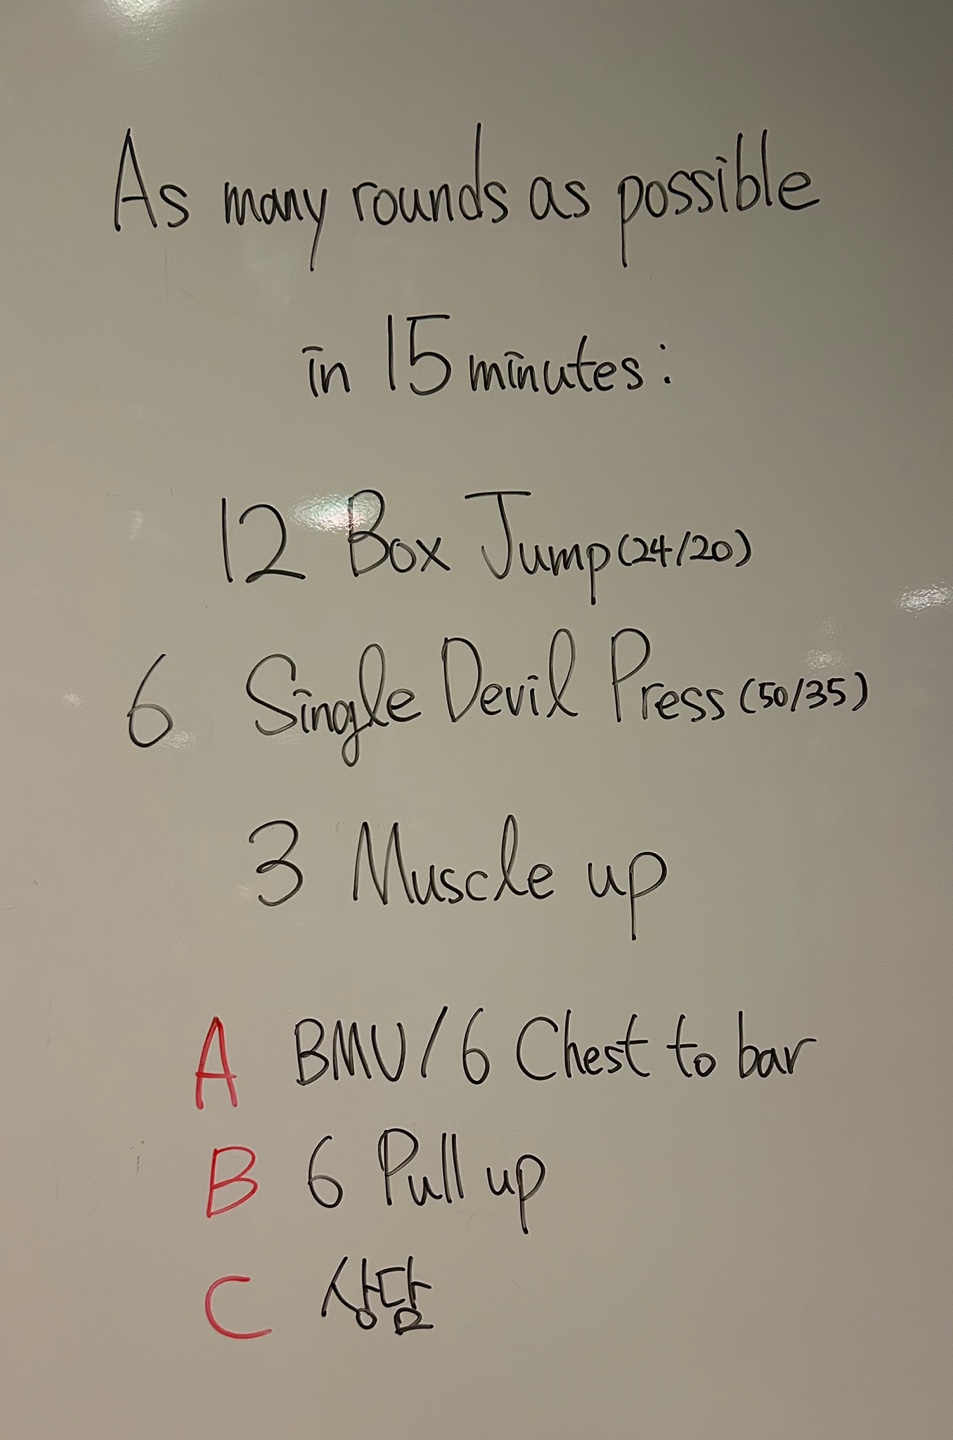 As many rounds as possible
in 15 minutes:
12 Box Jump (24/20)
6 Single Devil Press (50/35)
3 Muscle up
A BMU/6 Chest to bar
B 6 Pull up
C 상담